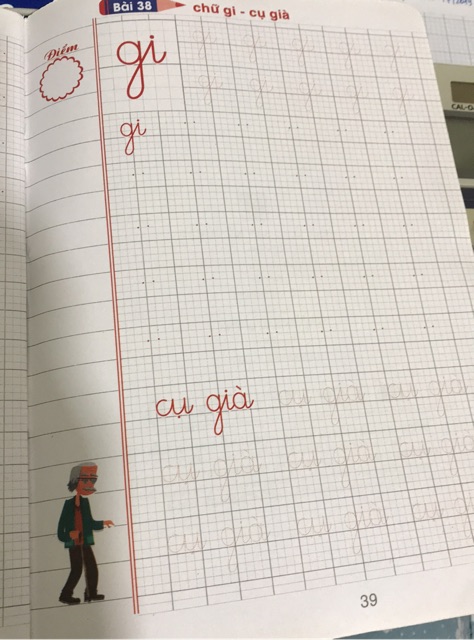 Bài 38 chữ gi - cụ già
Điểm
gi
gi gi gi gi gi
gi
cụ già cụ già cụ già
cụ già cụ già cụ già
cụ già cụ già cụ g
39